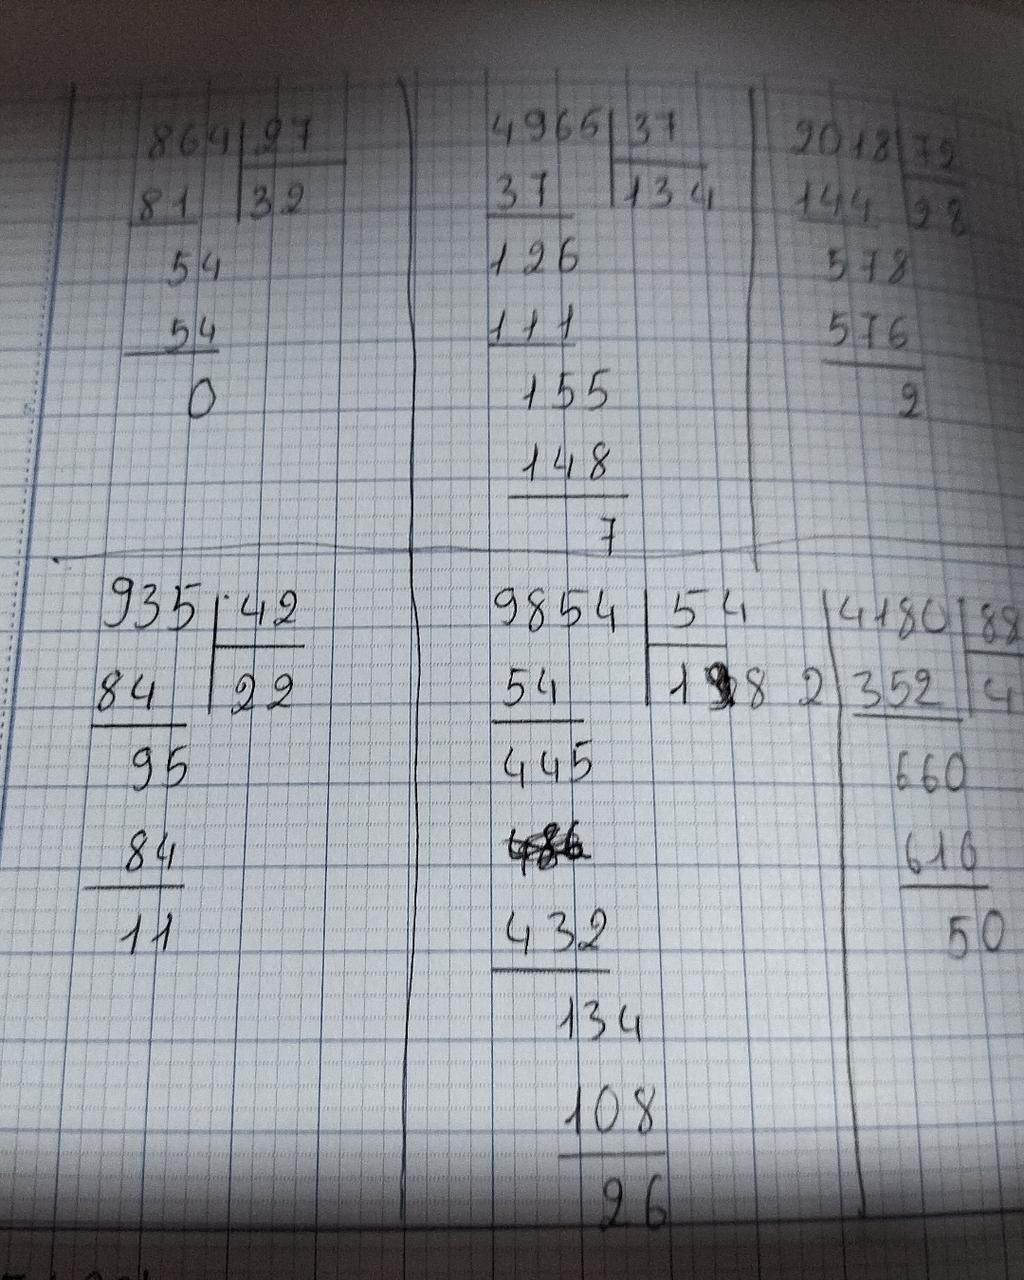 864 27
81 32
54
54
0
4965 37
37 134
126
111
155
148
7
2018 72
144 28
578
576
2
935 42
84 22
95
84
11
9854 54
54 182
445
432
134
108
26
4180 88
352 4
660
616
50